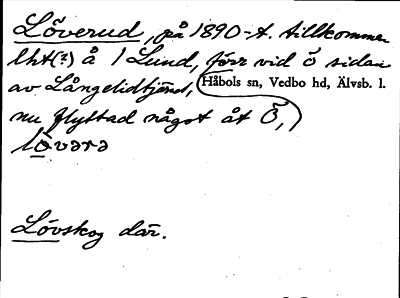 Löverud, på 1890-t. tillkommen
lht(?) å 1 Lund, förr vid ö sidan
av Långelidtjärnet, Håbols sn, Vedbo hd, Älvsb. l.
nu flyttad något åt Ö,)
lövərə
Lövskog där.